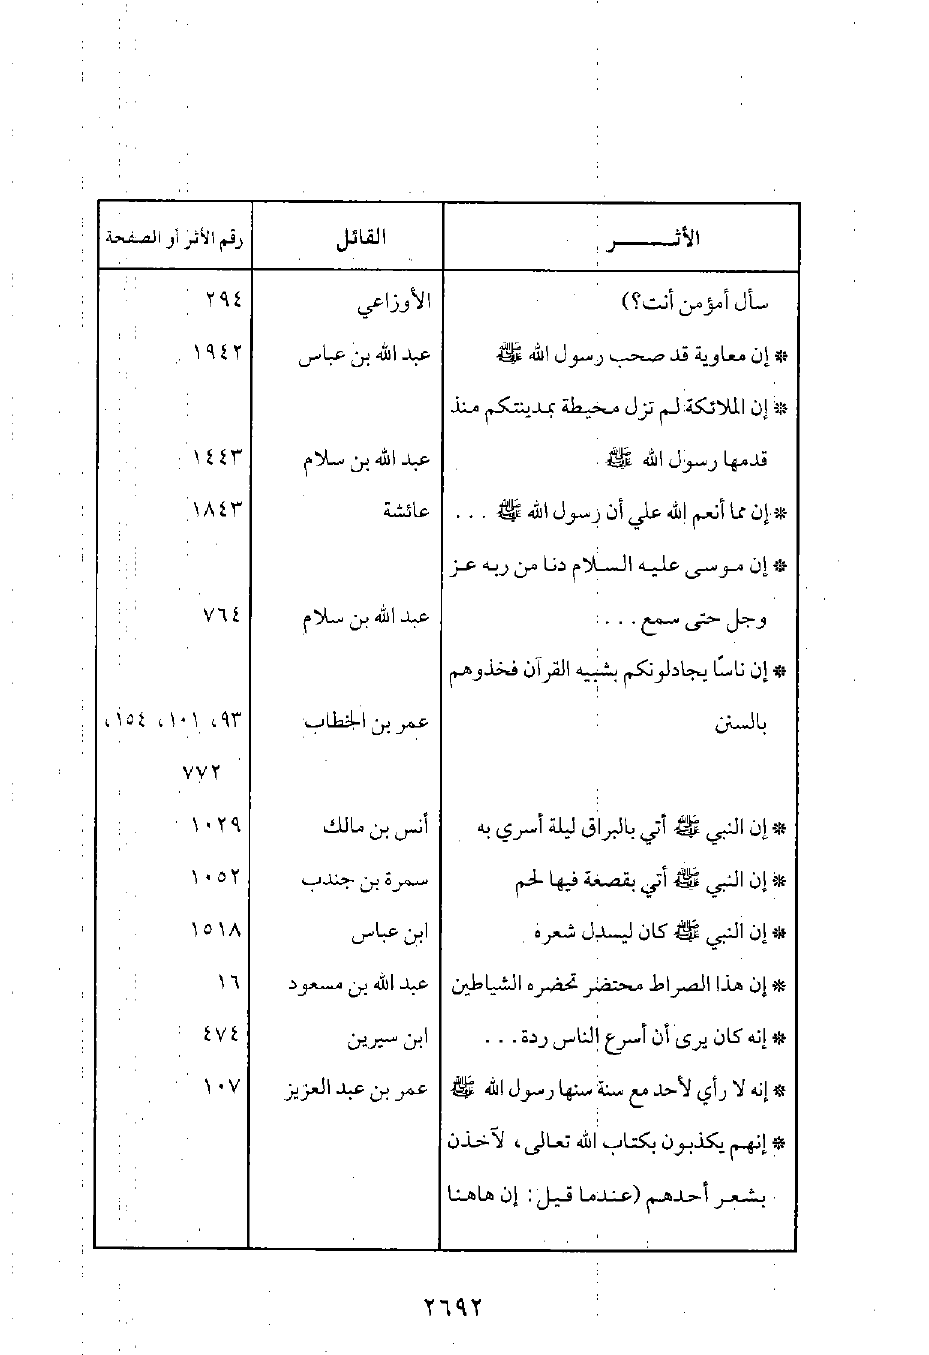 الأثـــــر القائل رقم الأثر أو الصفحة
سأل أمؤمن أنت؟) الأوزاعي ٢٩٤
* إن معاوية قد صحب رسول الله ﷺ عبد الله بن عباس ١٩٤٢
* إن الملائكة لم تزل محيطة بمدينتكم منذ
قدمها رسول الله ﷺ عبد الله بن سلام ١٤٤٣
* إن مما أنعم الله علي أن رسول الله ﷺ ... عائشة ١٨٤٣
* إن موسى عليه السلام دنا من ربه عز
وجل حتى سمع ... عبد الله بن سلام ٧٦٤
* إن ناسًا يجادلونكم بشبيه القرآن فخذوهم
بالسنن عمر بن الخطاب ٩٣، ١٠١، ١٥٤،
٧٧٢
* إن النبي ﷺ أتي بالبراق ليلة أسري به أنس بن مالك ١٠٢٩
* إن النبي ﷺ أتي بقصعة فيها لحم سمرة بن جندب ١٠٥٢
* إن النبي ﷺ كان ليسدل شعره ابن عباس ١٥١٨
* إن هذا الصراط محتضر تحضره الشياطين عبد الله بن مسعود ١٦
* إنه كان يرى أن أسرع الناس ردة... ابن سيرين ٤٧٤
* إنه لا رأي لأحد مع سنة سنها رسول الله ﷺ عمر بن عبد العزيز ١٠٧
* إنهم يكذبون بكتاب الله تعالى، لآخذن
بشعر أحدهم (عندما قيل: إن هاهنا
٢٦٩٢